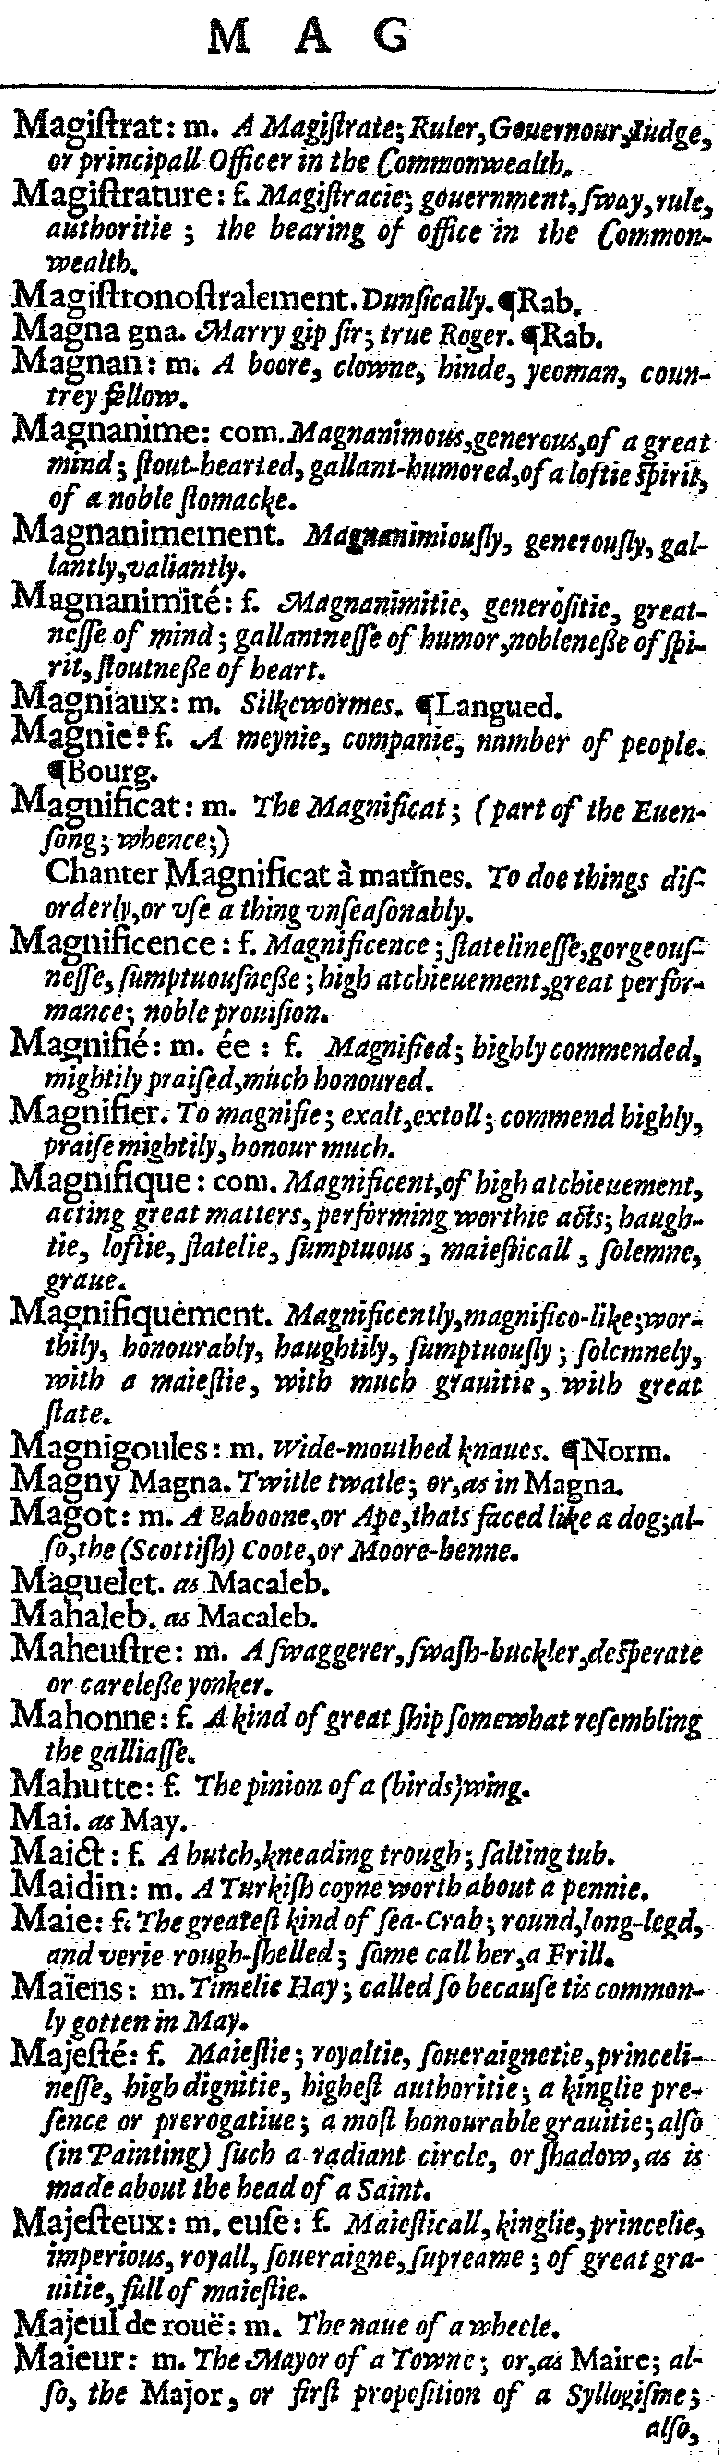 M A G
Magiſtrat: m. A Magiſtrate; Ruler, Gouernour, Iudge,
or principall Officer in the Commonwealth.
Magiſtrature: f. Magiſtracie; gouernment, ſway, rule,
authoritie ; the bearing of office in the Common-
wealth.
Magiſtronoſtralement. Dunſically. ¶Rab.
Magna gna. Marry gip ſir; true Roger. ¶Rab.
Magnan: m. A boore, clowne, hinde, yeoman, coun-
trey fellow.
Magnanime: com. Magnanimous, generous, of a great
mind; ſtout-hearted, gallant-humored, of a loftie ſpirit,
of a noble ſtomacke.
Magnanimement. Magnanimiouſly, generouſly, gal-
lantly, valiantly.
Magnanimité: f. Magnanimitie, generoſitie, great-
neſſe of mind; gallantneſſe of humor, nobleneſse of ſpi-
rit, ſtoutneſse of heart.
Magniaux: m. Silkewormes. ¶Langued.
Magnie: f. A meynie, companie, number of people.
¶Bourg.
Magnificat: m. The Magnificat; (part of the Euen-
ſong; whence;)
Chanter Magnificat à matines. To doe things diſ-
orderly, or vſe a thing vnſeaſonably.
Magnificence: f. Magnificence; ſtatelineſſe, gorgeouſ-
neſſe, ſumptuouſneſse; high atchieuement, great perfor-
mance; noble prouiſion.
Magnifié: m. ée : f. Magnified; highly commended,
mightily praiſed, much honoured.
Magnifier. To magnifie; exalt, extoll; commend highly,
praiſe mightily, honour much.
Magnifique: com. Magnificent, of high atchieuement,
acting great matters, performing worthie acts; haugh-
tie, loftie, ſtatelie, ſumptuous, maieſticall, ſolemne,
graue.
Magnifiquement. Magnificently, magnifico-like; wor-
thily, honourably, haughtily, ſumptuouſly; ſolemnely,
with a maieſtie, with much grauitie, with great
ſtate.
Magnigoules: m. Wide-mouthed knaues. ¶Norm.
Magny Magna. Twitle twatle; or, as in Magna.
Magot: m. A Baboone, or Ape, thats faced like a dog; al-
ſo, the (Scottiſh) Coote, or Moore-henne.
Maguelet. as Macaleb.
Mahaleb. as Macaleb.
Maheuſtre: m. A ſwaggerer, ſwaſh-buckler, deſperate
or careleſse yonker.
Mahonne: f. A kind of great ſhip ſomewhat reſembling
the galliaſſe.
Mahutte: f. The pinion of a (birds) wing.
Mai. as May.
Maict: f. A hutch, kneading trough; ſalting tub.
Maidin: m. A Turkiſh coyne worth about a pennie.
Maie: f. The greateſt kind of ſea-Crab; round, long-legd,
and verie rough-ſhelled; ſome call her, a Frill.
Maïens: m. Timelie Hay; called ſo becauſe tis common-
ly gotten in May.
Majeſté: f. Maieſtie; royaltie, ſoueraignetie, princeli-
neſſe, high dignitie, higheſt authoritie; a kinglie pre-
ſence or prerogatiue; a moſt honourable grauitie; alſo
(in Painting) ſuch a radiant circle, or ſhadow, as is
made about the head of a Saint.
Majeſteux: m. euſe: f. Maieſticall, kinglie, princelie,
imperious, royall, ſoueraigne, ſupreame; of great gra-
uitie, full of maieſtie.
Majeul de rouë: m. The naue of a wheele.
Maieur: m. The Mayor of a Towne; or, as Maire; al-
ſo, the Major, or firſt propoſition of a Syllogiſme;
alſo,